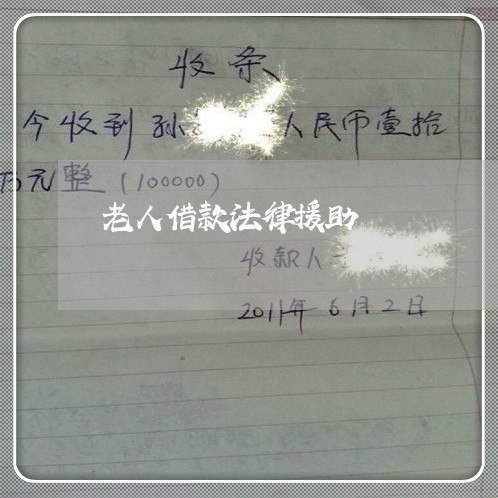 收条
今收到孙 人民币壹拾
万元整(100000)
老人借款法律援助
收款人
2011年6月2日